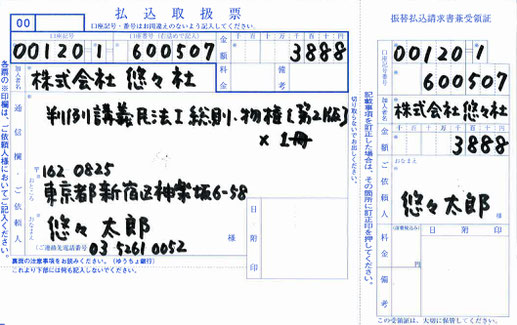 00
払込取扱票
口座記号・番号はお間違えのないよう記入してください。
口座記号
口座番号(右詰めで記入)
00120-1 600507
金額
千百十万千百十円
3888
料金
備考
加入者名
株式会社 悠々社
通信欄・ご依頼人
判例講義民法Ⅰ総則・物権[第2版]
×1冊
〒162 0825
おところ
東京都新宿区神楽坂6-58
おなまえ
悠々 太郎
様
(ご連絡先電話番号) 03 5261 0052
日附印
裏面の注意事項をお読みください。(ゆうちょ銀行)
これより下部には何も記入しないでください。
各票の※印欄は、ご依頼人様においてご記入ください。
切り取らないでお出しください。
振替払込請求書兼受領証
00120-1
600507
加入者名
株式会社悠々社
金額
千百十万千百十円
3888
ご依頼人
おなまえ
悠々 太郎
様
料金
(消費税込み)
日附印
備考
記載事項を訂正した場合は、その箇所に訂正印を押してください。
この受領証は、大切に保管してください。